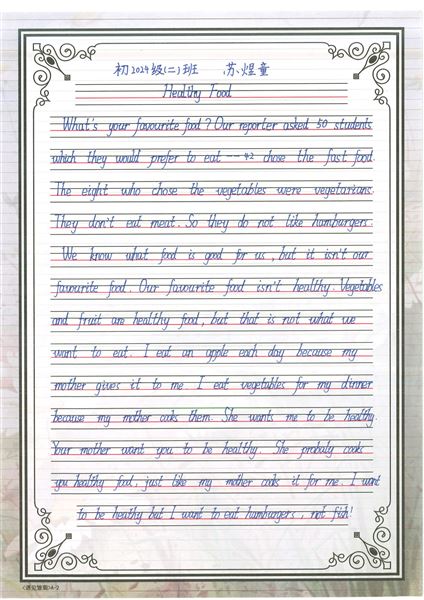 初2024级(二)班 苏煜童
Healthy Food
What's your favourite food? Our reporter asked 50 students
which they would prefer to eat -- 42 chose the fast food.
The eight who chose the vegetables were vegetarians.
They don't eat meat. So they do not like hamburgers.
We know what food is good for us, but it isn't our
favourite food. Our favourite food isn't healthy. Vegetables
and fruit are healthy food, but that is not what we
want to eat. I eat an apple each day because my
mother gives it to me. I eat vegetables for my dinner
because my mother cooks them. She wants me to be healthy.
Your mother want you to be healthy. She probaly cooks
you healthy food, just like my mother cooks it for me. I want
to be healthy but I want to eat hamburgers, not fish!